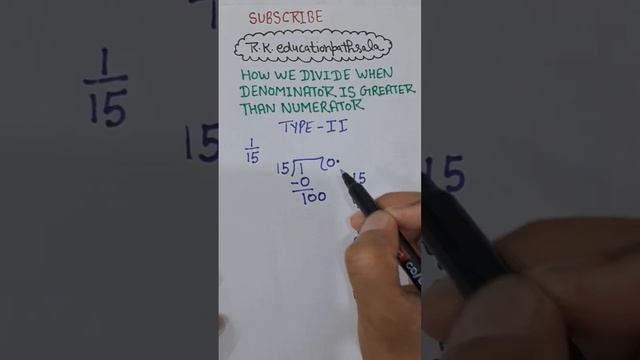 SUBSCRIBE
R.K. educationpathsala
HOW WE DIVIDE WHEN
DENOMINATOR IS GREATER
THAN NUMERATOR
TYPE-II
1
15
15)1(0.
-0
100
15